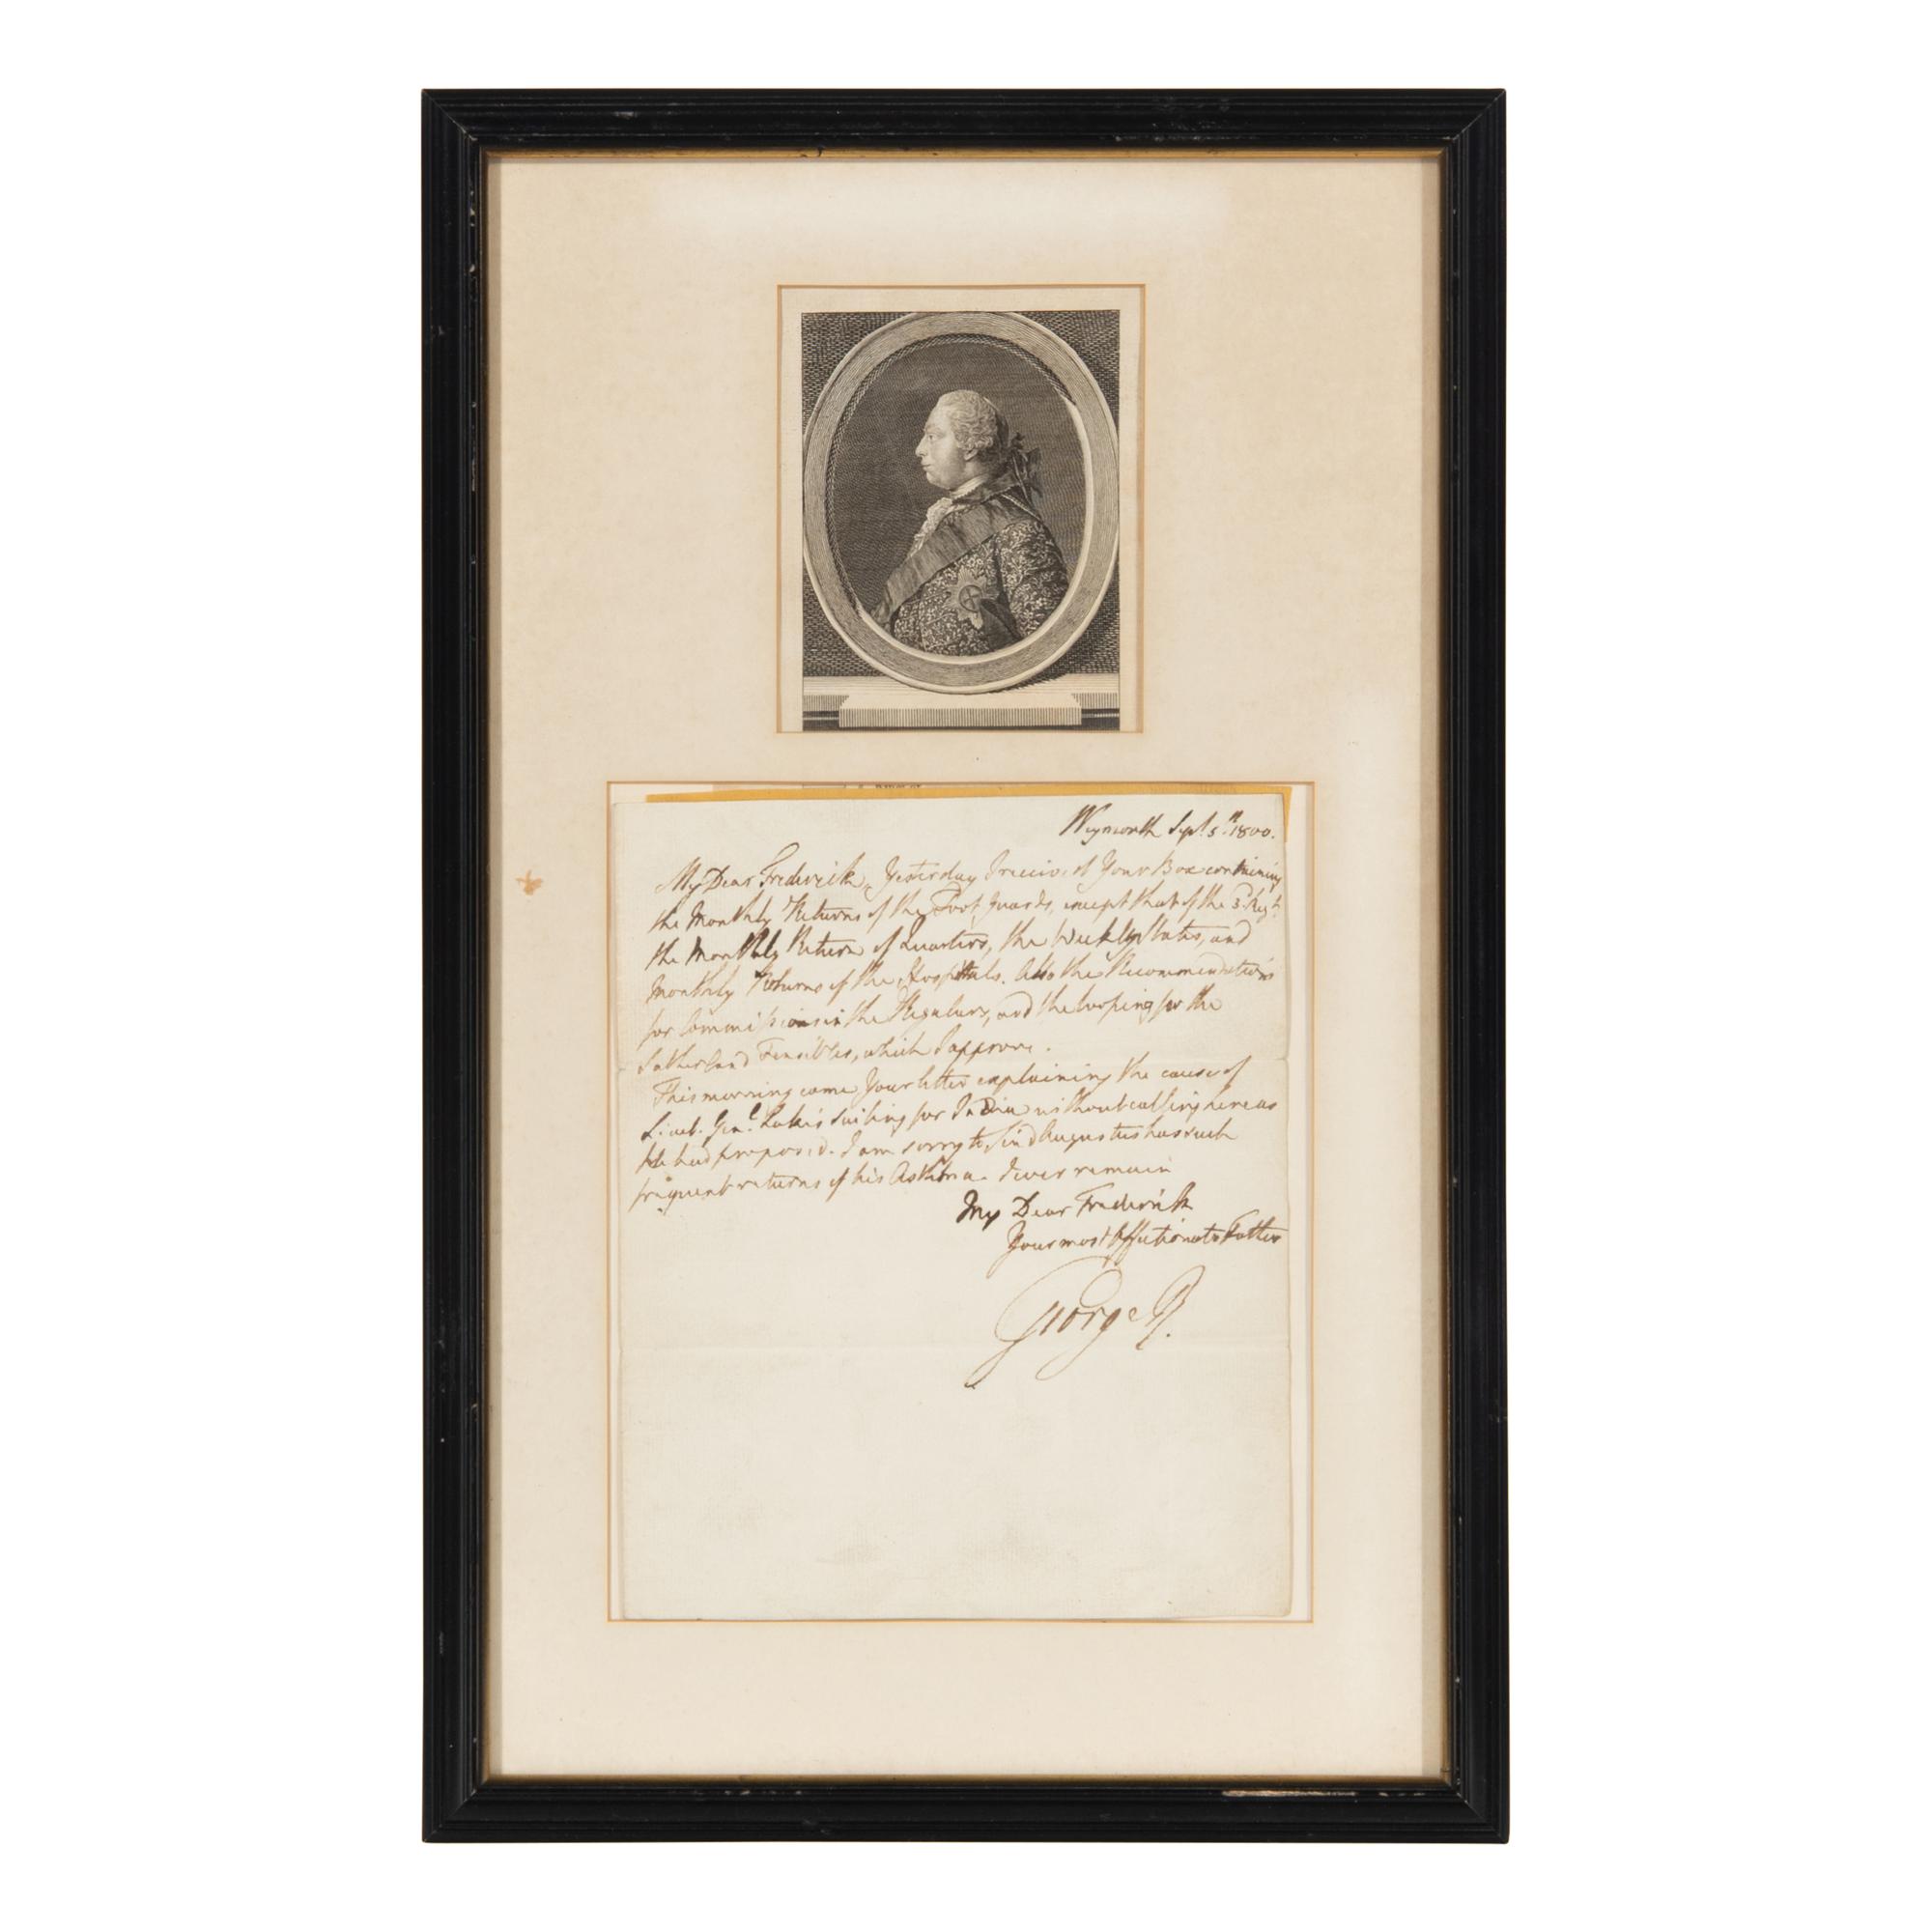 Weymouth Sept. 5th 1800.
My Dear Frederick, Yesterday I received Your Box containing
the Monthly Returns of the Foot Guards, except that of the 3d. Regt.
the Monthly Return of Quarters, the Weekly States, and
Monthly Returns of the Hospitals. Also the Recommendations
for Commissions in the Regulars, and the for the
Sutherland Fencibles, which I approve.
This morning came Your letter explaining the cause of
Lieut. Genl. Lake's sailing for India without calling here as
He had proposed. I am sorry to find Augustus has such
frequent returns of his Asthma. I ever remain
My Dear Frederick
Your most Affectionate Father
George R.